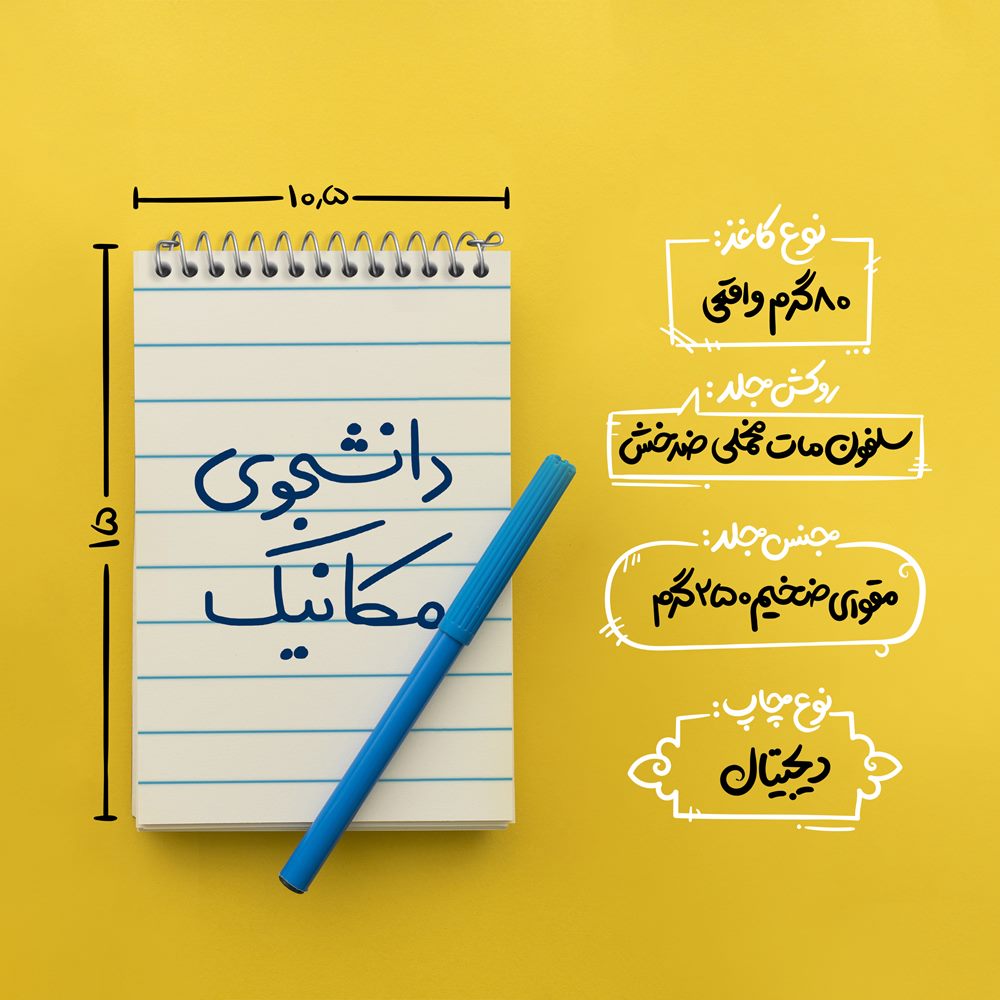 ۱۰٫۵
۱۵
دانشجوی
مکانیک
نوع کاغذ:
۸۰گرم واقعی
روکش جلد:
سلفون مات مخملی ضدخش
جنس جلد:
مقوای ضخیم ۲۵۰گرم
نوع چاپ:
دیجیتال